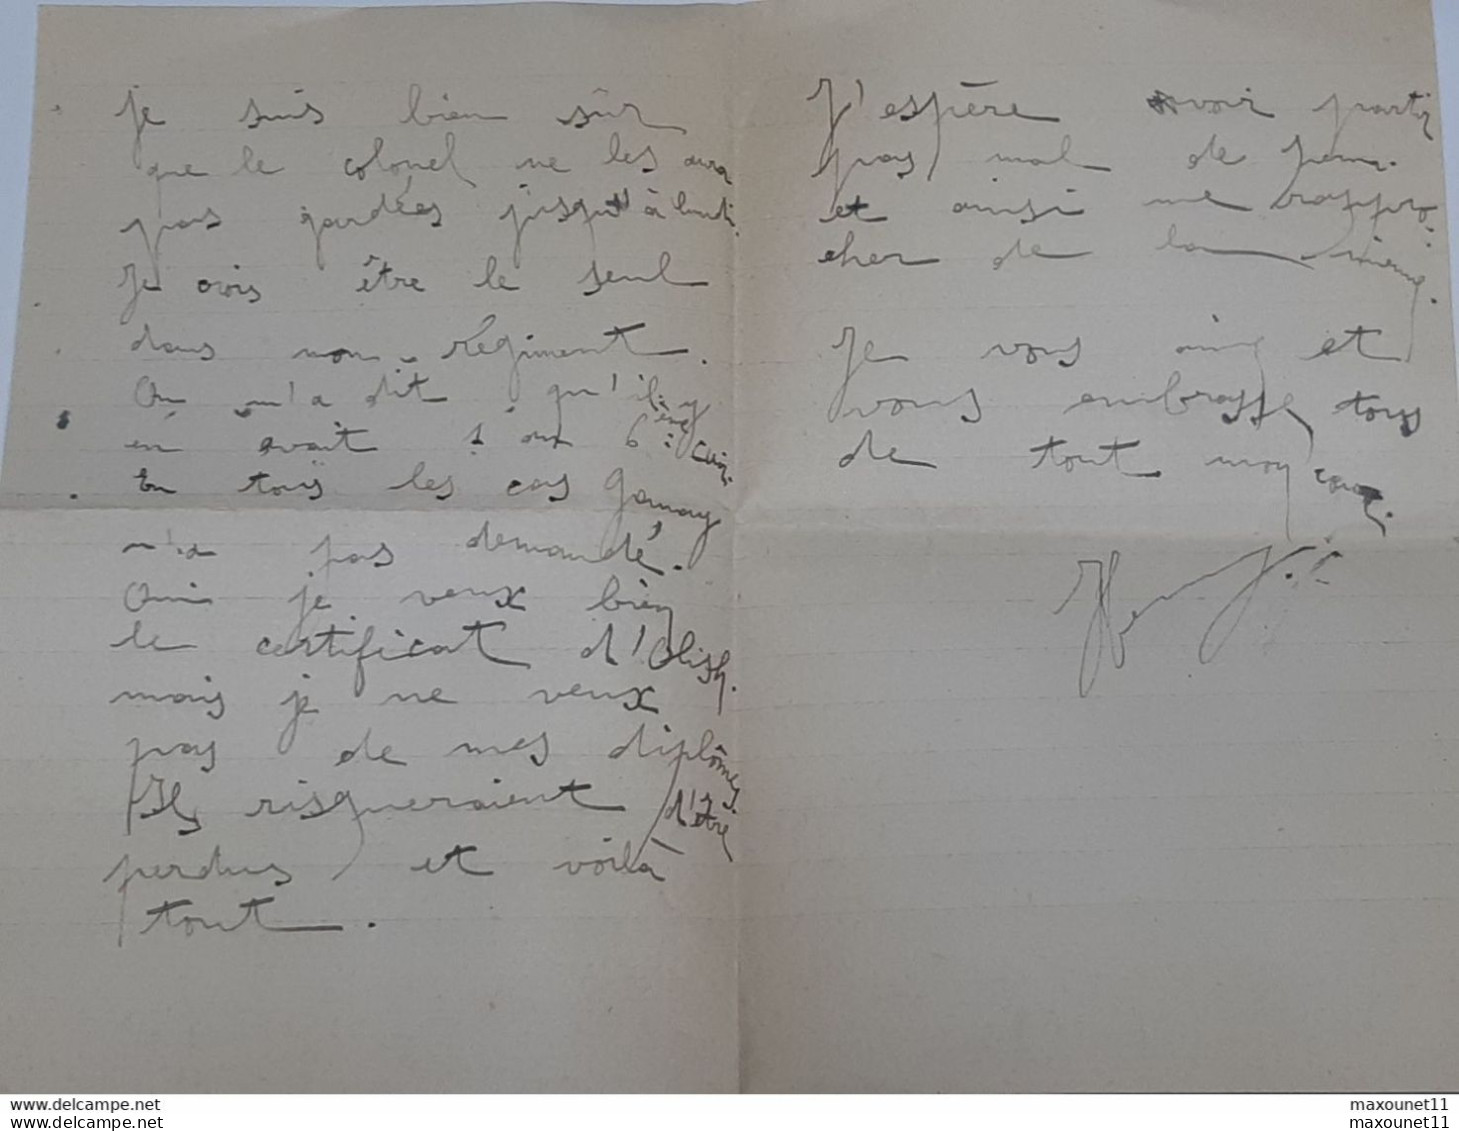 je suis bien sûr
que le colonel ne les aura
pas gardées jusqu'à lundi.
Je crois être le seul
dans mon Régiment.
On m'a dit qu'il y
en avait 1 au 6ème Cuir.
En tous les cas Gamay
n'a pas demandé.
Oui je veux bien
le certificat d'Olish.
mais je ne veux
pas de mes diplômes.
Ils risqueraient d'être
perdus et voilà
tout.
J'espère voir partir
pas mal de
et ainsi me rappro-
cher de la mienne.
Je vous aime et
vous embrasse tous
de tout mon cœur.
maxounet11
maxounet11
maxounet11
maxounet11